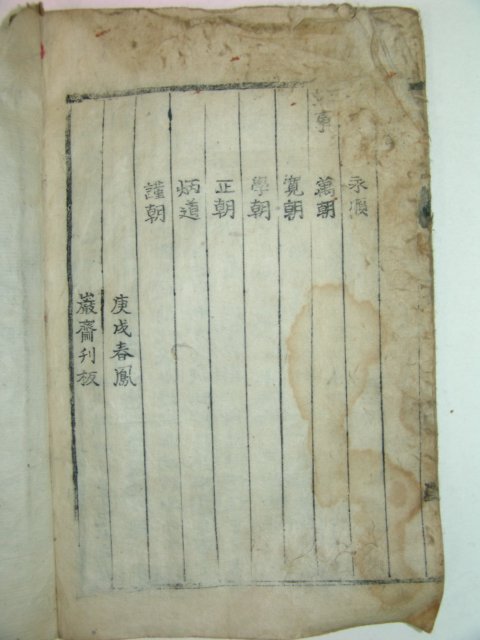 永
萬朝
寬朝
學朝
正朝
炳道
謹朝
庚戌春鳳
巖齋刊板